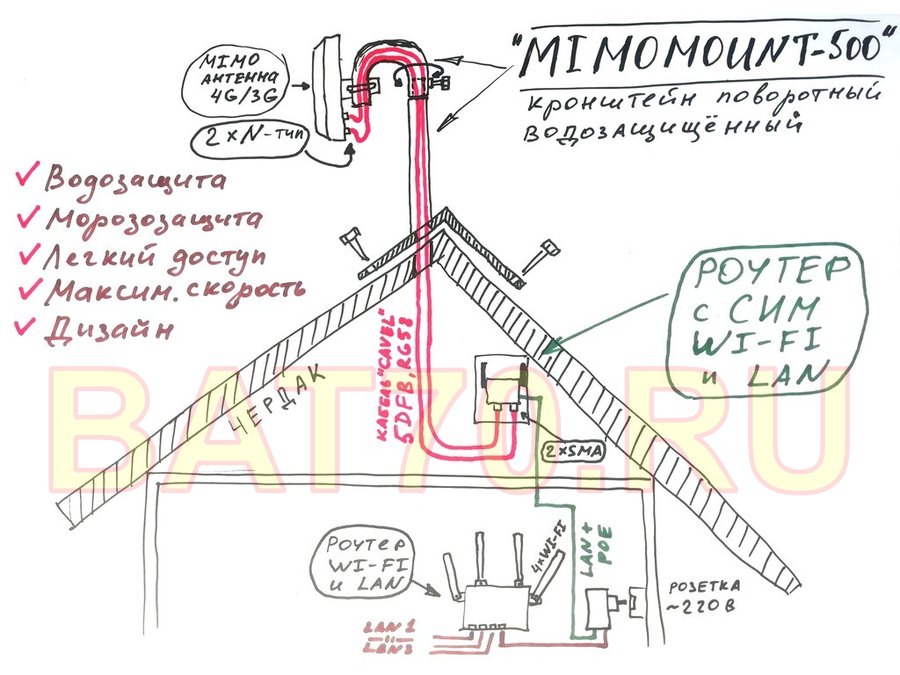 "MIMOMOUNT-500"
кронштейн поворотный
водозащищённый
MIMO
АНТЕННА
4G/3G
2×N-тип
Водозащита
Морозозащита
Легкий доступ
Максим. скорость
Дизайн
РОУТЕР
с СИМ
WI-FI
и LAN
КАБЕЛЬ "CAVEL"
5DFB, RG58
ЧЕРДАК
BAT70.RU
2×SMA
Роутер
WI-FI
и LAN
4×WI-FI
LAN +
POE
РОЗЕТКА
~220В
LAN1
LAN3